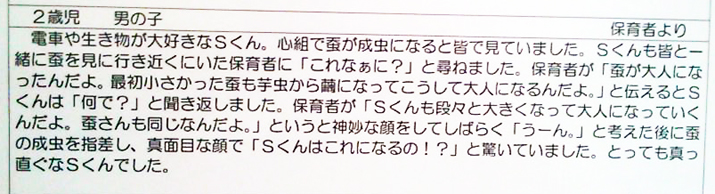 2歳児 男の子
保育者より
電車や生き物が大好きなSくん。心組で蚕が成虫になると皆で見ていました。Sくんも皆と一
緒に蚕を見に行き近くにいた保育者に「これなぁに?」と尋ねました。保育者が「蚕が大人にな
ったんだよ。最初小さかった蚕も芋虫から繭になってこうして大人になるんだよ。」と伝えるとS
くんは「何で?」と聞き返しました。保育者が「Sくんも段々と大きくなって大人になっていく
んだよ。蚕さんも同じなんだよ。」というと神妙な顔をしてしばらく「うーん。」と考えた後に蚕
の成虫を指差し、真面目な顔で「Sくんはこれになるの!?」と驚いていました。とっても真っ
直ぐなSくんでした。